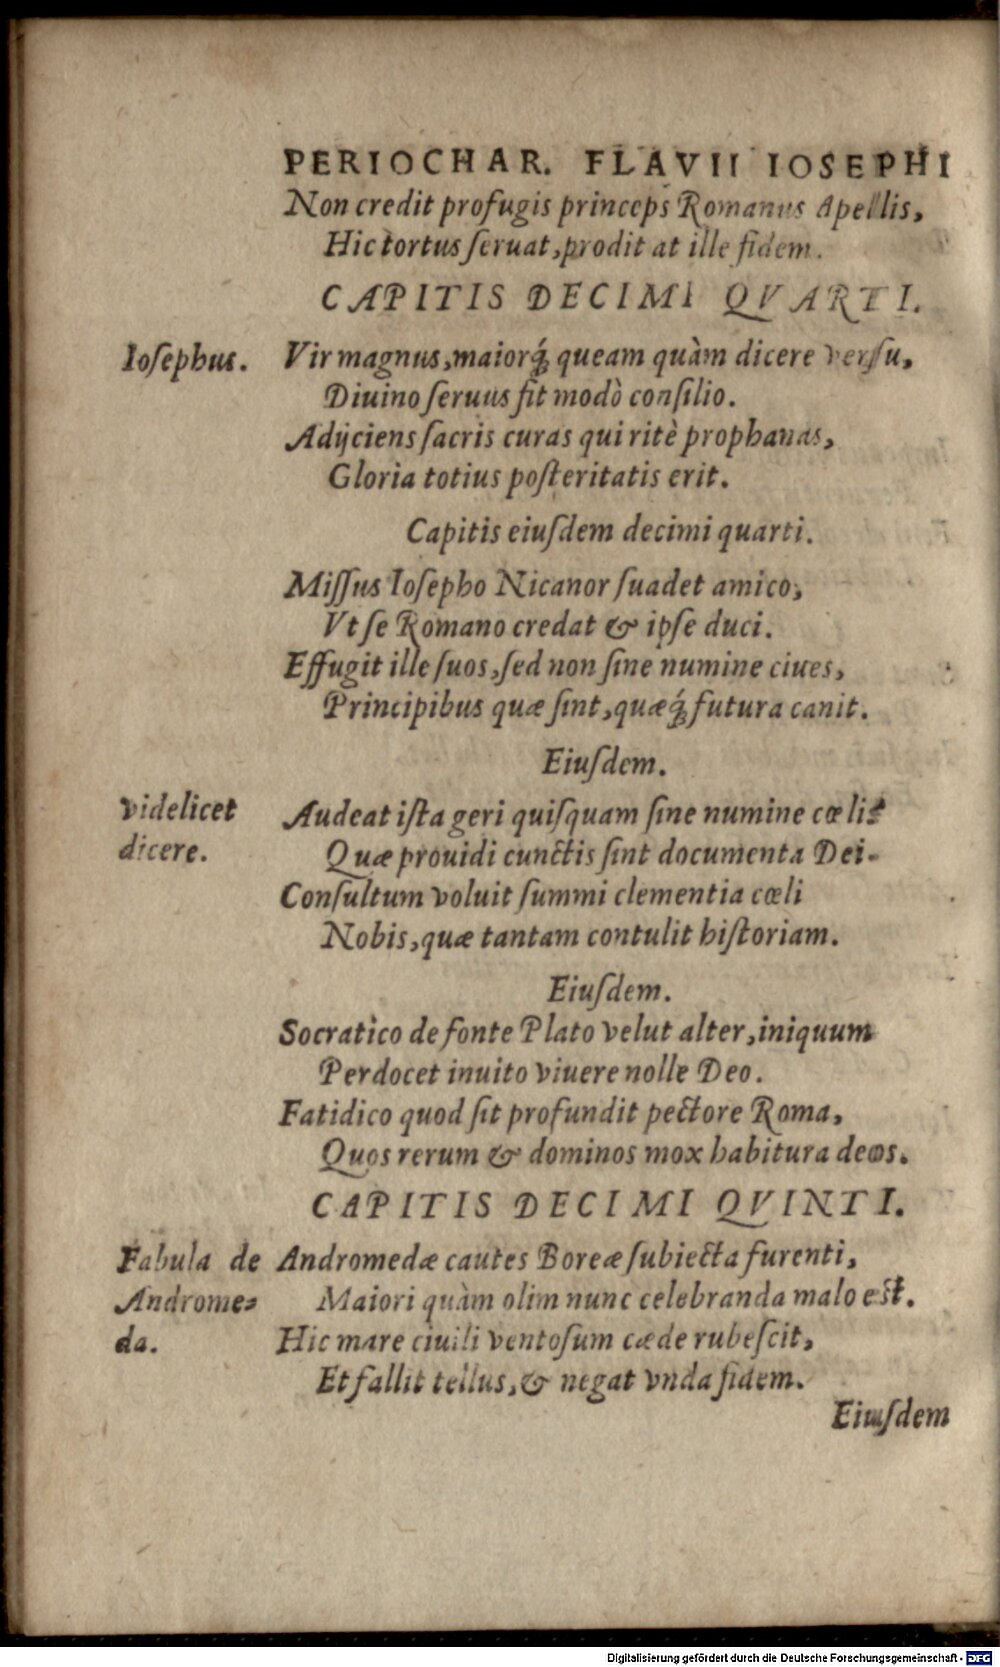 PERIOCHAR. FLAVII IOSEPHI
Non credit profugis princeps Romanus Apellis,
Hic tortus ſeruat, prodit at ille fidem.
CAPITIS DECIMI QVARTI.
Ioſephus.
Vir magnus, maiorq́; queam quàm dicere verſu,
Diuino ſeruus fit modò conſilio.
Adijciens ſacris curas qui ritè prophanas,
Gloria totius poſteritatis erit.
Capitis eiuſdem decimi quarti.
Miſſus Ioſepho Nicanor ſuadet amico,
Vt ſe Romano credat & ipſe duci.
Effugit ille ſuos, ſed non ſine numine ciues,
Principibus quæ ſint, quæq́; futura canit.
Eiuſdem.
videlicet
dicere.
Audeat iſta geri quiſquam ſine numine cœli?
Quæ prouidi cunctis ſint documenta Dei.
Conſultum voluit ſummi clementia cœli
Nobis, quæ tantam contulit hiſtoriam.
Eiuſdem.
Socratico de fonte Plato velut alter, iniquum
Perdocet inuito viuere nolle Deo.
Fatidico quod ſit profundit pectore Roma,
Quos rerum & dominos mox habitura deos.
CAPITIS DECIMI QVINTI.
Fabula de
Androme=
da.
Andromedæ cautes Boreæ ſubiecta furenti,
Maiori quàm olim nunc celebranda malo eſt.
Hic mare ciuili ventoſum cæde rubeſcit,
Et fallit tellus, & negat vnda fidem.
Eiuſdem
Digitalisierung gefördert durch die Deutsche Forschungsgemeinschaft - DFG